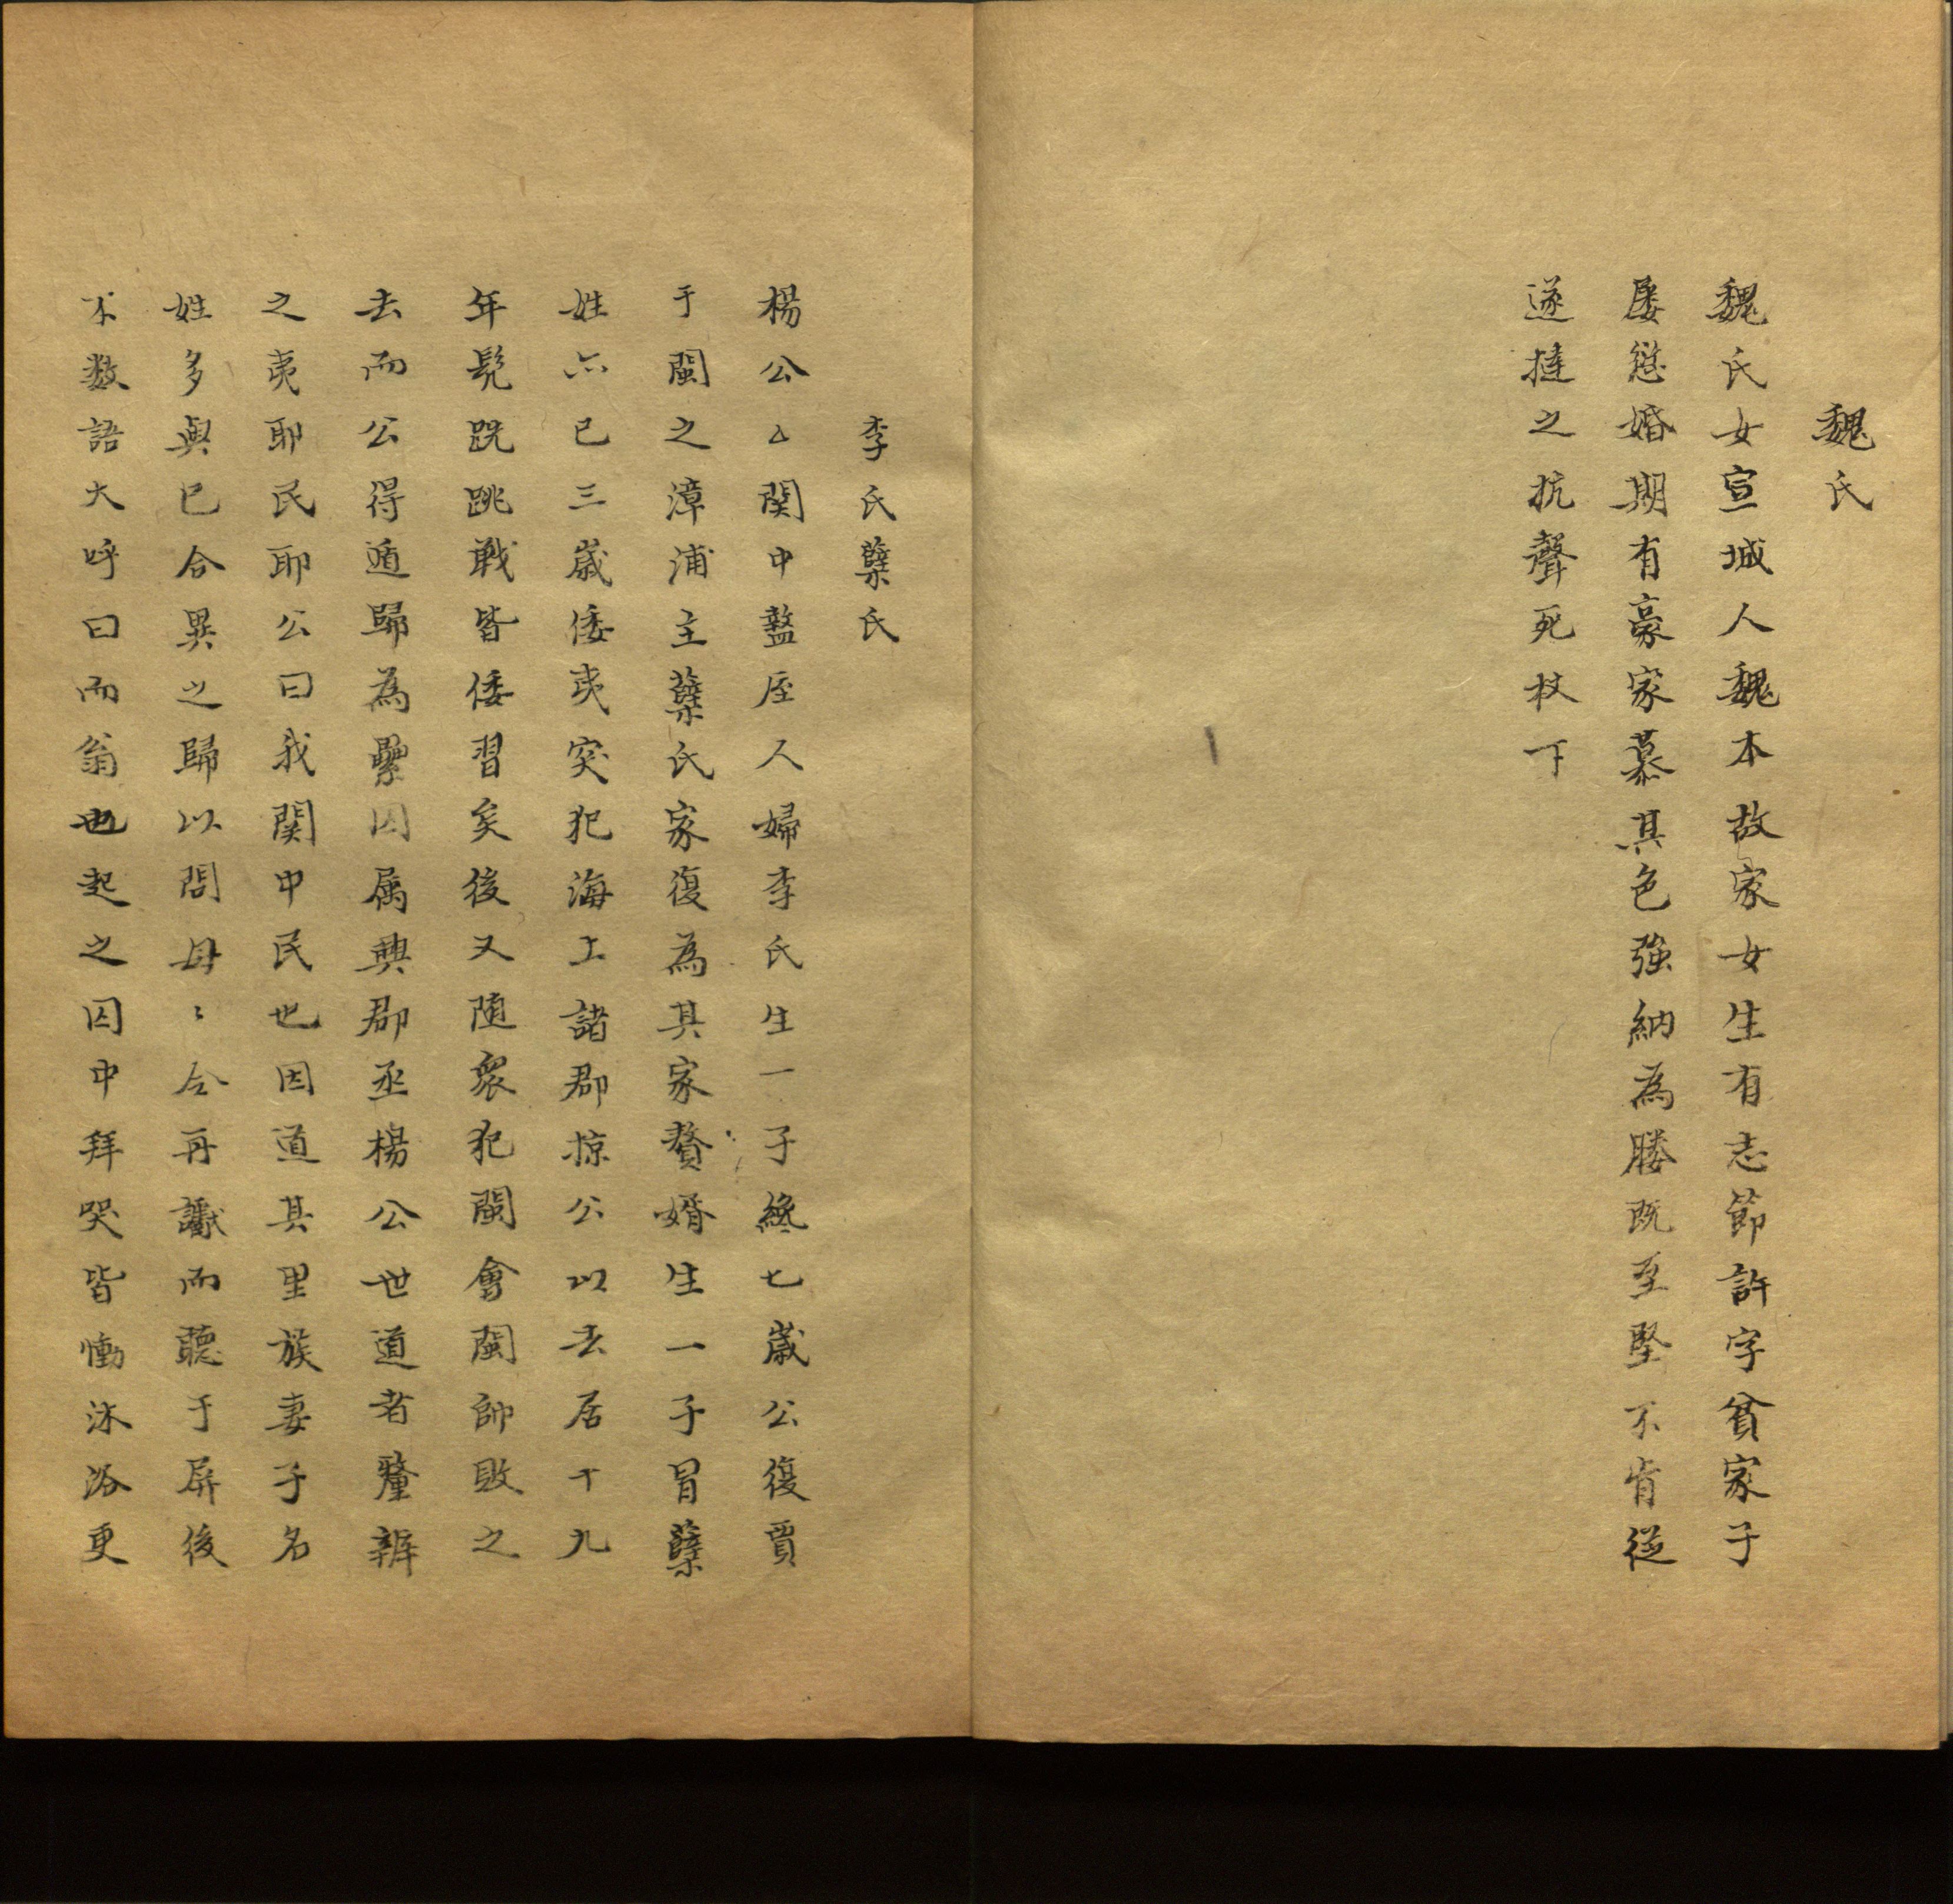 魏氏
魏氏女宣城人魏本故家女生有志節許字貧家子
屡愆婚期有豪家慕其色強納為媵既至堅不肯從
遂撻之抗聲死杖下
李氏蘖氏
楊公厶関中盩厔人婦李氏生一子纔七歳公復賈
于閩之漳浦主蘖氏家復為其家贅婿生一子冒蘖
姓亦已三歳倭夷突犯海上諸郡掠公以去居十九
年髠跣跳戰皆倭習矣後又随衆犯閩會閩帥敗之
去而公得遁歸為纍囚属興郡丞楊公世道者釐辨
之夷耶民耶公曰我関中民也因道其里族妻子名
姓多與已合異之歸以問母〻令再讞而聽于屏後
不数語大呼曰而翁也起之囚中拜哭皆慟沐浴更